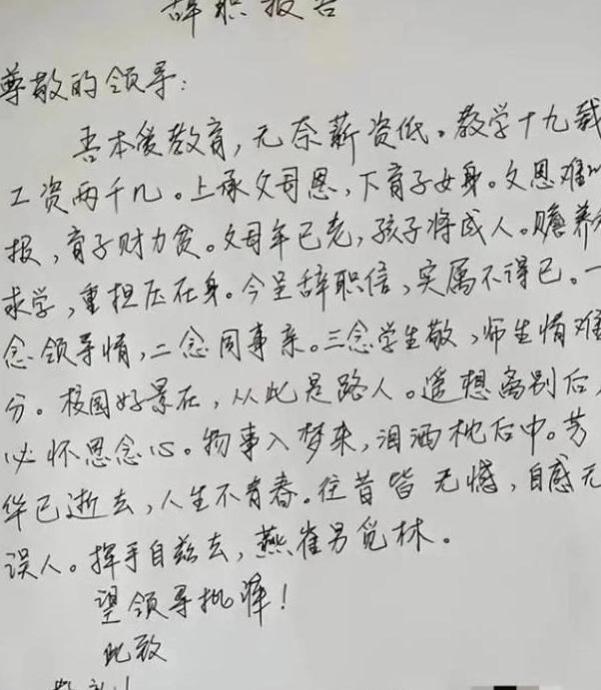 辞职报告
尊敬的领导：
吾本爱教育，无奈薪资低。教学十九载
工资两千几。上承父母恩，下育子女身。父恩难以
报，育子财力贫。父母年已老，孩子将成人。赡养
求学，重担压在身。今呈辞职信，实属不得已。一
念领导情，二念同事亲。三念学生敬，师生情难
分。校园好景在，从此是路人。遥想离别后，
必怀思念心。物事入梦来，泪洒枕后中。芳
华已逝去，人生不青春。往昔皆无憾，自感无
误人。挥手自兹去，燕雀另觅林。
望领导批准！
此致
敬礼！